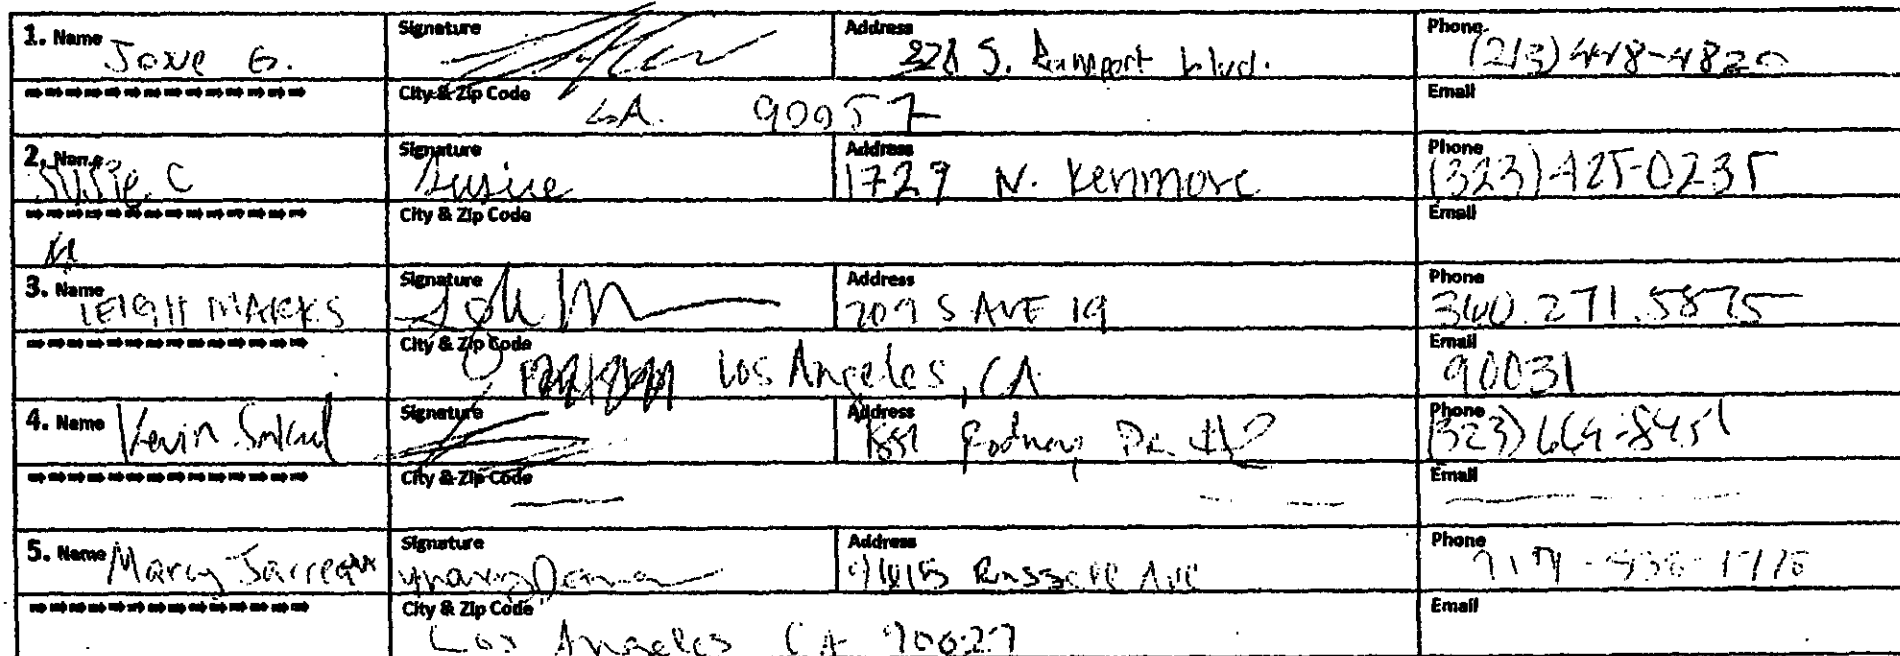 1. Name Jose G. Signature Address 328 S. Rampart blvd. Phone (213) 448-4820
City & Zip Code LA. 90057 Email
2. Name Susie C Signature Susie Address 1729 N. Kenmore Phone (323) 425-0235
City & Zip Code Email
3. Name LEIGH MARKS Signature Address 209 S AVE 19 Phone 360.271.5875
City & Zip Code Los Angeles, CA Email 90031
4. Name Kevin Signature Address Rodney Dr. #2 Phone (323) 664-8451
City & Zip Code Email
5. Name Marcy Signature Address Russell Ave Phone
City & Zip Code Los Angeles CA 90027 Email